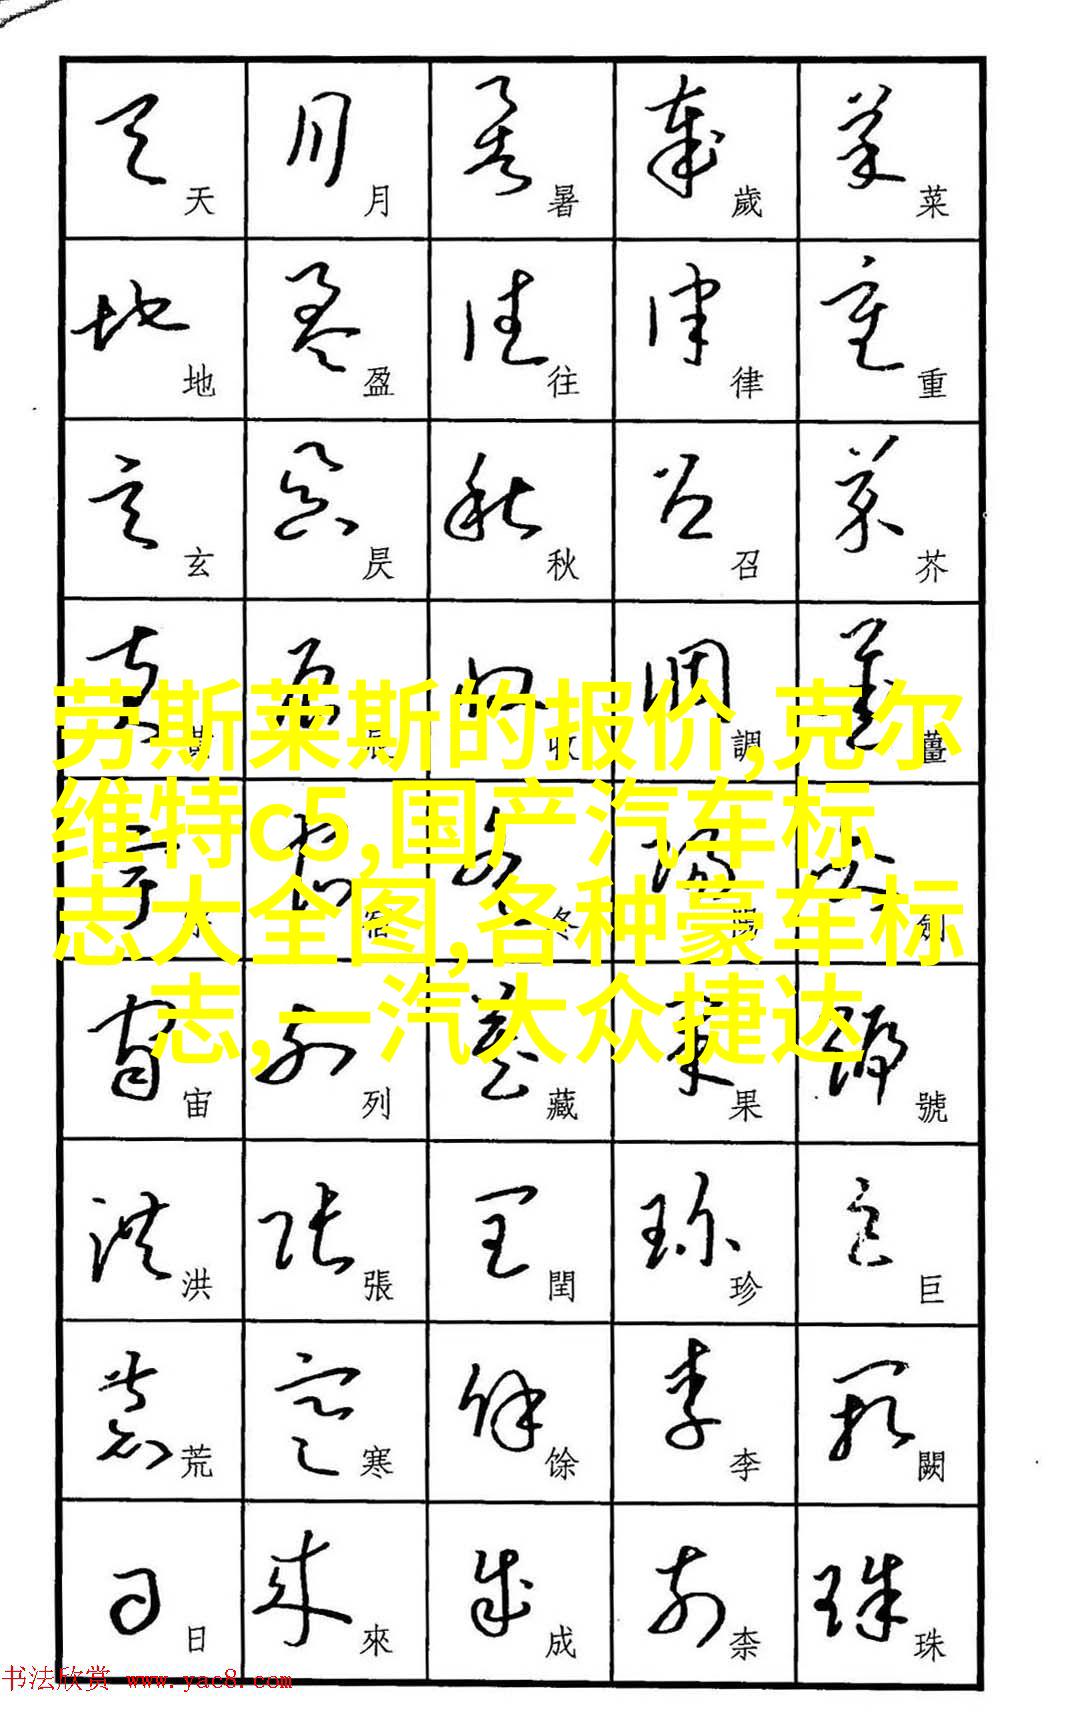 天 月 暑 歲 菜
地 盈 往 律 重
玄 昃 秋 召 芥
黃 辰 收 調 薑
劳斯莱斯的报价,克尔
维特c5,国产汽车标
志大全图,各种豪车标
志,一汽大众捷达
宿 冬 陽
宙 列 藏 果 號
洪 張 閏 珍 巨
荒 寒 馀 李 闕
日 來 成 柰 珠
书法欣赏 www.yac8.com